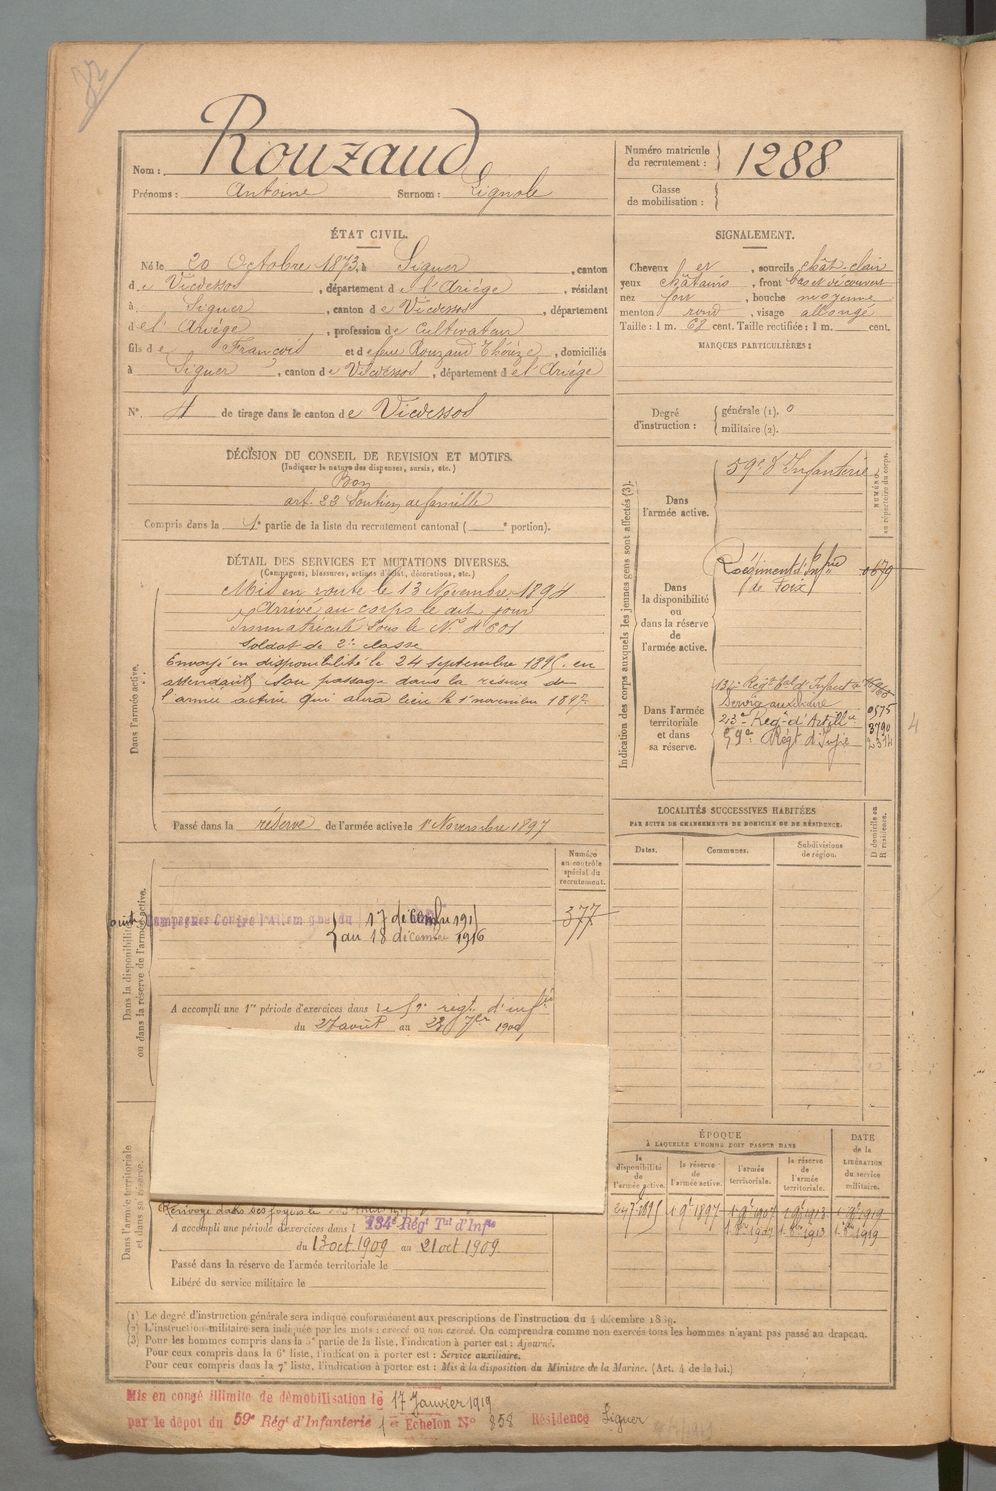 Rouzaud
Nom :
Prénoms : Antoine Surnom : Lignole
Numéro matricule du recrutement : 1288
Classe de mobilisation :
ÉTAT CIVIL.
Né le 20 Octobre 1873, à Siguer, canton
de Vicdessos, département de l'Ariège, résidant
à Siguer, canton de Vicdessos, département
de l'Ariège, profession de Cultivateur
fils de François et de feue Rouzaud Thérèze, domiciliés
à Siguer, canton de Vicdessos, département de l'Ariège
N° 4 de tirage dans le canton de Vicdessos
SIGNALEMENT.
Cheveux et, sourcils chât-clair
yeux châtains, front bas et découvert
nez fort, bouche moyenne
menton rond, visage allongé
Taille : 1 m. 62 cent. Taille rectifiée : 1 m. cent.
MARQUES PARTICULIÈRES :
Degré d'instruction : générale (1). 0
militaire (2).
DÉCISION DU CONSEIL DE REVISION ET MOTIFS.
(Indiquer la nature des dispenses, sursis, etc.)
Bon
art. 23 Soutien de famille
Compris dans la 1e partie de la liste du recrutement cantonal ( e portion).
DÉTAIL DES SERVICES ET MUTATIONS DIVERSES.
(Campagnes, blessures, actions d'éclat, décorations, etc.)
Dans l'armée active.
Mis en route le 13 Novembre 1894
Arrivé au corps le dit jour
Immatriculé sous le N° 4601
Soldat de 2e classe
Envoyé en disponibilité le 24 septembre 1895. en
attendant son passage dans la réserve de
l'armée active qui aura lieu le 1er novembre 1897
Passé dans la réserve de l'armée active le 1er Novembre 1897
Indication des corps auxquels les jeunes gens sont affectés (3).
NUMÉRO au répertoire du corps.
Dans l'armée active.
59e d'Infanterie
Dans la disponibilité ou dans la réserve de l'armée active.
Régiment d'Infrie
de Foix
0679
Dans l'armée territoriale et dans sa réserve.
134e Régt tal d'Infant
Service auxiliaire
0575
23e Régt d'Artillie 3790
59e Régt d'Infie
4
LOCALITÉS SUCCESSIVES HABITÉES
PAR SUITE DE CHANGEMENTS DE DOMICILE OU DE RÉSIDENCE.
Dates. Communes. Subdivisions de région.
D domicile ou R résidence.
Numéro au contrôle spécial du recrutement.
377
Dans la disponibilité ou dans la réserve de l'armée active.
Campagnes Contre l'Allemagne du 17 décembre 191
au 18 décembre 1916
A accompli une 1re période d'exercices dans le 59e régt d'infrie
du 27 août au 23 7bre 1900
Dans l'armée territoriale et dans sa réserve.
Renvoyé dans ses foyers le
A accompli une période d'exercices dans l 134e Régt Tal d'Infie
du 13 oct 1909 au 21 oct 1909.
Passé dans la réserve de l'armée territoriale le
Libéré du service militaire le
ÉPOQUE
À LAQUELLE L'HOMME DOIT PASSER DANS
DATE de la LIBÉRATION du service militaire.
la disponibilité de l'armée active. la réserve de l'armée active. l'armée territoriale. la réserve de l'armée territoriale.
24 7bre 1895 1 9bre 1897 1 9bre 1907 1 9bre 1913 1 9bre 1919
1. 8bre 1907 1. 8bre 1913 1. 8bre 1919
(1) Le degré d'instruction générale sera indiqué conformément aux prescriptions de l'instruction du 4 décembre 1889.
(2) L'instruction militaire sera indiquée par les mots : exercé ou non exercé. On comprendra comme non exercés tous les hommes n'ayant pas passé au drapeau.
(3) Pour les hommes compris dans la 5e partie de la liste, l'indication à porter est : Ajourné.
Pour ceux compris dans la 6e liste, l'indication à porter est : Service auxiliaire.
Pour ceux compris dans la 7e liste, l'indication à porter est : Mis à la disposition du Ministre de la Marine. (Art. 4 de la loi.)
Mis en congé illimité de démobilisation le 17 Janvier 1919
par le dépôt du 59e Régt d'Infanterie 1er Echelon N° 858 Résidence Siguer